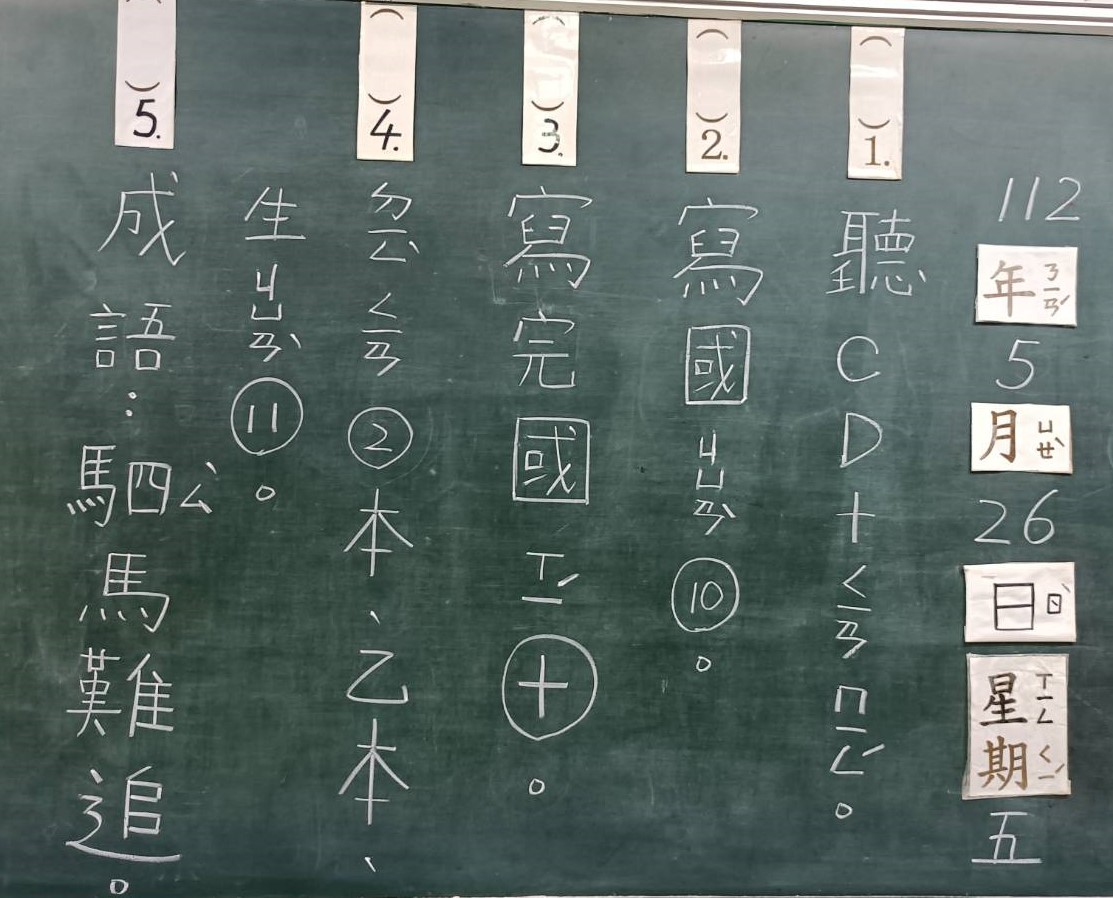 112年ㄋㄧㄢˊ5月ㄩㄝˋ26日ㄖˋ星期ㄒㄧㄥㄑㄧˊ五
( )1.聽CD+ㄑㄧㄢㄇㄧㄥˊ。
( )2.寫國ㄐㄩㄢˋ⑩。
( )3.寫完國ㄒㄧˊ㊉。
( )4. ㄑㄧㄢ②本、乙本、
生ㄐㄩㄢˋ⑪。
( )5.成語:駟ㄙˋ馬難追。